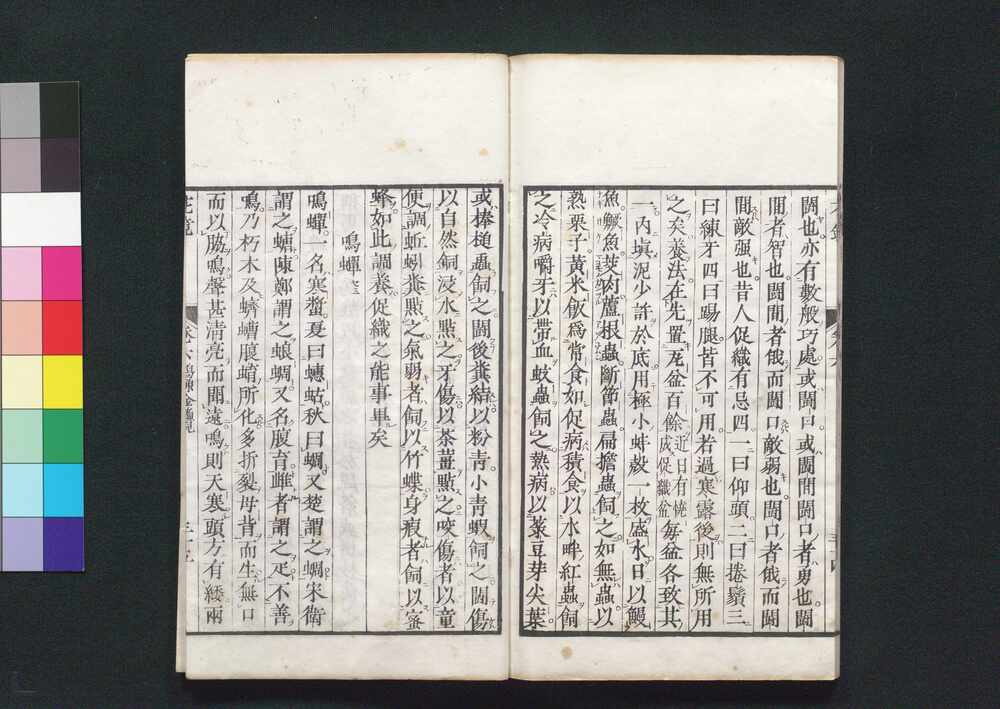 鬪也亦有數般巧處或鬪口或鬪間鬪口者勇也鬪
間者智也鬪間者俄而鬪口敵弱也鬪口者俄而鬪
間敵强也昔人促織有忌四一曰仰頭二曰捲鬚三
曰練牙四曰踢腿皆不可用若過寒露後則無所用
之矣養法在先置瓦盆百餘近日有燒成促織盆每盆各致其
一內塡泥少許於底用極小蚌殼一枚盛水日以鰻
魚鱖魚茭肉蘆根蟲斷節蟲扁擔蟲飼之如無蟲以
熟栗子黃米飯爲常食如促病積食以水畔紅蟲飼
之冷病嚼牙以帶血蚊蟲飼之熱病以菉豆芽尖葉
或棒槌蟲飼之鬪後糞結以粉靑小靑蝦飼之鬪傷
以自然銅浸水㸃之牙傷以茶薑㸃之咬傷者以童
便調蚯蚓糞㸃之氣弱者飼以竹蝶身瘦者飼以蜜
蜂如此調養促織之能事畢矣
鳴蟬
鳴蟬一名寒螿夏曰蟪蛄秋曰蜩又楚謂之蜩宋衛
謂之螗陳鄭謂之蜋蜩又名腹育雌者謂之疋不善
鳴乃朽木及蠐螬腹蜟所化多折裂母背而生無口
而以脇鳴聲甚淸亮而聞遠鳴則天寒頭方有緌兩
花鏡
卷六
三十五